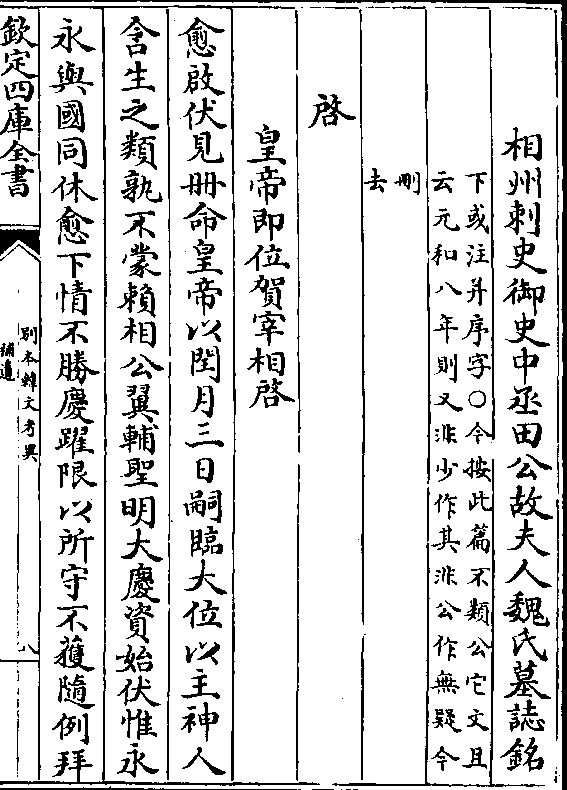 相州刺史御史中丞田公故夫人魏氏墓誌銘
下或注并序字〇今按此篇不類公它文且
云元和八年則又非少作其非公作無疑今
刪
去
啓
皇帝即位賀宰相啓
愈啟伏見冊命皇帝以閏月三日嗣臨大位以主神人
含生之類孰不蒙賴相公翼輔聖明大慶資始伏惟永
永與國同休愈下情不勝慶躍限以所守不獲隨例拜
欽定四庫全書
別本韓文考異
補遺
八